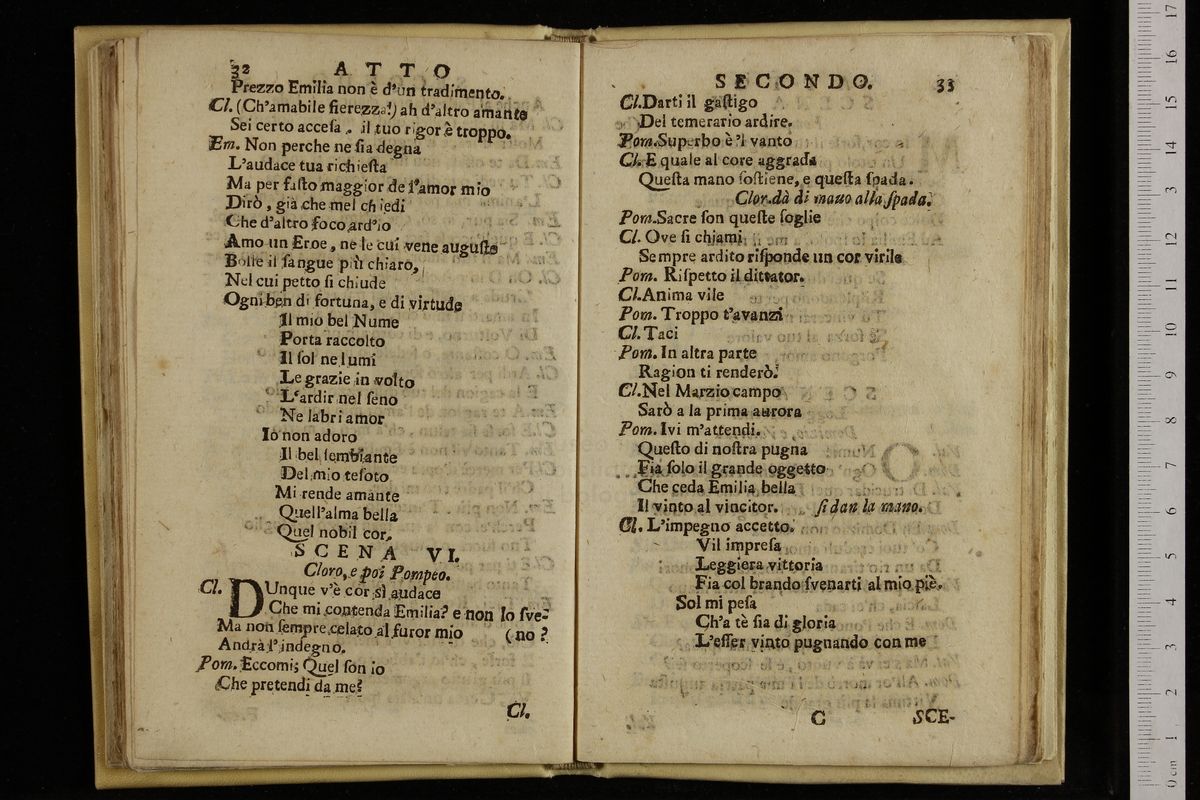 32 ATTO
Prezzo Emilia non è d'un tradimento.
Cl. (Ch'amabile fierezza!) ah d'altro amante
Sei certo acceſa, il tuo rigor è troppo.
Em. Non perche ne ſia degna
L'audace tua richieſta
Ma per faſto maggior de l'amor mio
Dirò, già che mel chiedi
Che d'altro foco ard'io
Amo un Eroe, ne le cui vene auguſte
Bolle il ſangue più chiaro,
Nel cui petto ſi chiude
Ogni ben di fortuna, e di virtude
Il mio bel Nume
Porta raccolto
Il ſol ne lumi
Le grazie in volto
L'ardir nel ſeno
Ne labri amor
Io non adoro
Il bel ſembiante
Del mio teſoto
Mi rende amante
Quell'alma bella
Quel nobil cor.
SCENA VI.
Cloro, e poi Pompeo.
Cl. DUnque v'è cor sì audace
Che mi contenda Emilia? e non lo ſve-
Ma non ſempre celato al furor mio (no?
Andrà l'indegno.
Pom. Eccomi; Quel ſon io
Che pretendi da me?
Cl.
SECONDO. 33
Cl. Darti il gaſtigo
Del temerario ardire.
Pom. Superbo è 'l vanto
Cl. E quale al core aggrada
Queſta mano ſoſtiene, e queſta ſpada.
Clor. dà di mauo alla ſpada.
Pom. Sacre ſon queſte ſoglie
Cl. Ove ſi chiami
Sempre ardito riſponde un cor virile
Pom. Riſpetto il dittator.
Cl. Anima vile
Pom. Troppo t'avanzi
Cl. Taci
Pom. In altra parte
Ragion ti renderò.
Cl. Nel Marzio campo
Sarò a la prima aurora
Pom. Ivi m'attendi.
Queſto di noſtra pugna
Fia ſolo il grande oggetto
Che ceda Emilia bella
Il vinto al vincitor. ſi dan la mano.
Cl. L'impegno accetto.
Vil impreſa
Leggiera vittoria
Fia col brando ſvenarti al mio piè.
Sol mi peſa
Ch'a tè ſia di gloria
L'eſſer vinto pugnando con me
C SCE-